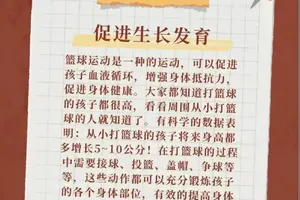 促进生长发育
篮球运动是一种的运动，可以促进
孩子血液循环，增强身体抵抗力，
促进身体健康。大家都知道打篮球
的孩子都很高，看看周围从小打篮
球的人就知道了。有科学的数据表
明：从小打篮球的孩子将来身高都
多增长5~10公分！在打篮球的过程
中需要接球、投篮、盖帽、争球等
等，这些动作都可以充分锻炼孩子
的各个身体部位，有效的提高身体